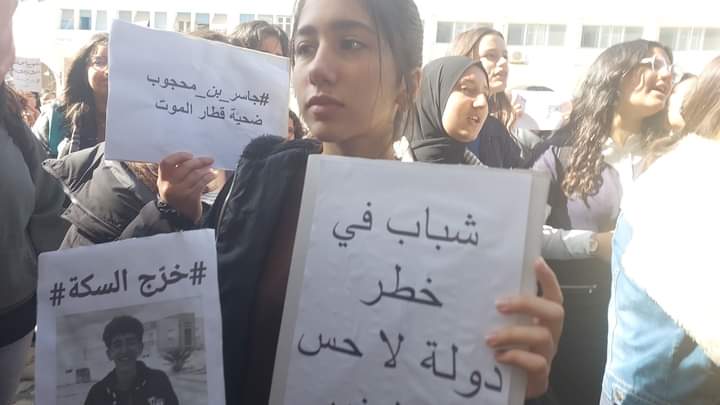 #جاسر_بن_محجوب
ضحية قطار الموت
#خرّج السكة#
شباب في
خطر
دولة لا حس